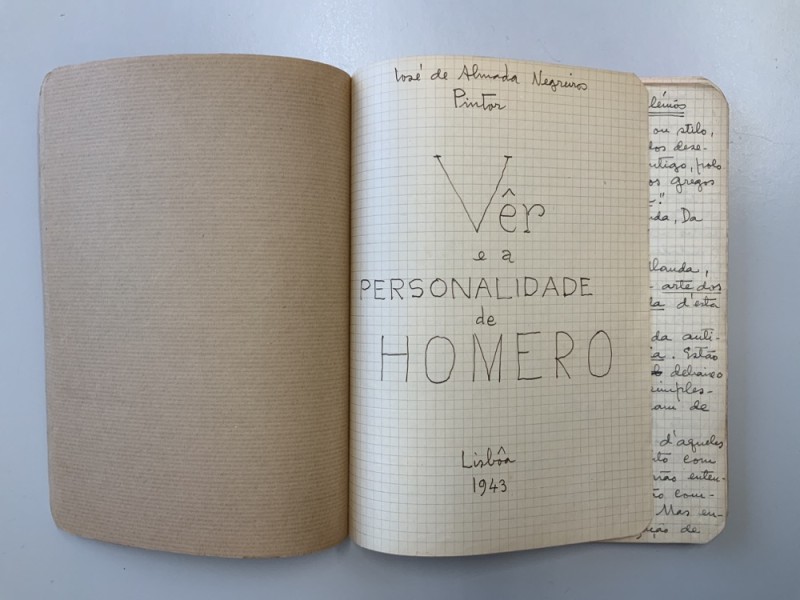 José de Almada Negreiros
Pintor
Vêr
e a
PERSONALIDADE
de
HOMERO
Lisbôa
1943
ou stilo,
dos dese-
ntigo, polo
os gregos
Da
arte dos
d'esta
da anti-
Estão
debaixo
simples-
de
d'aquelas
com
não enten-
com-
Mas en-
de